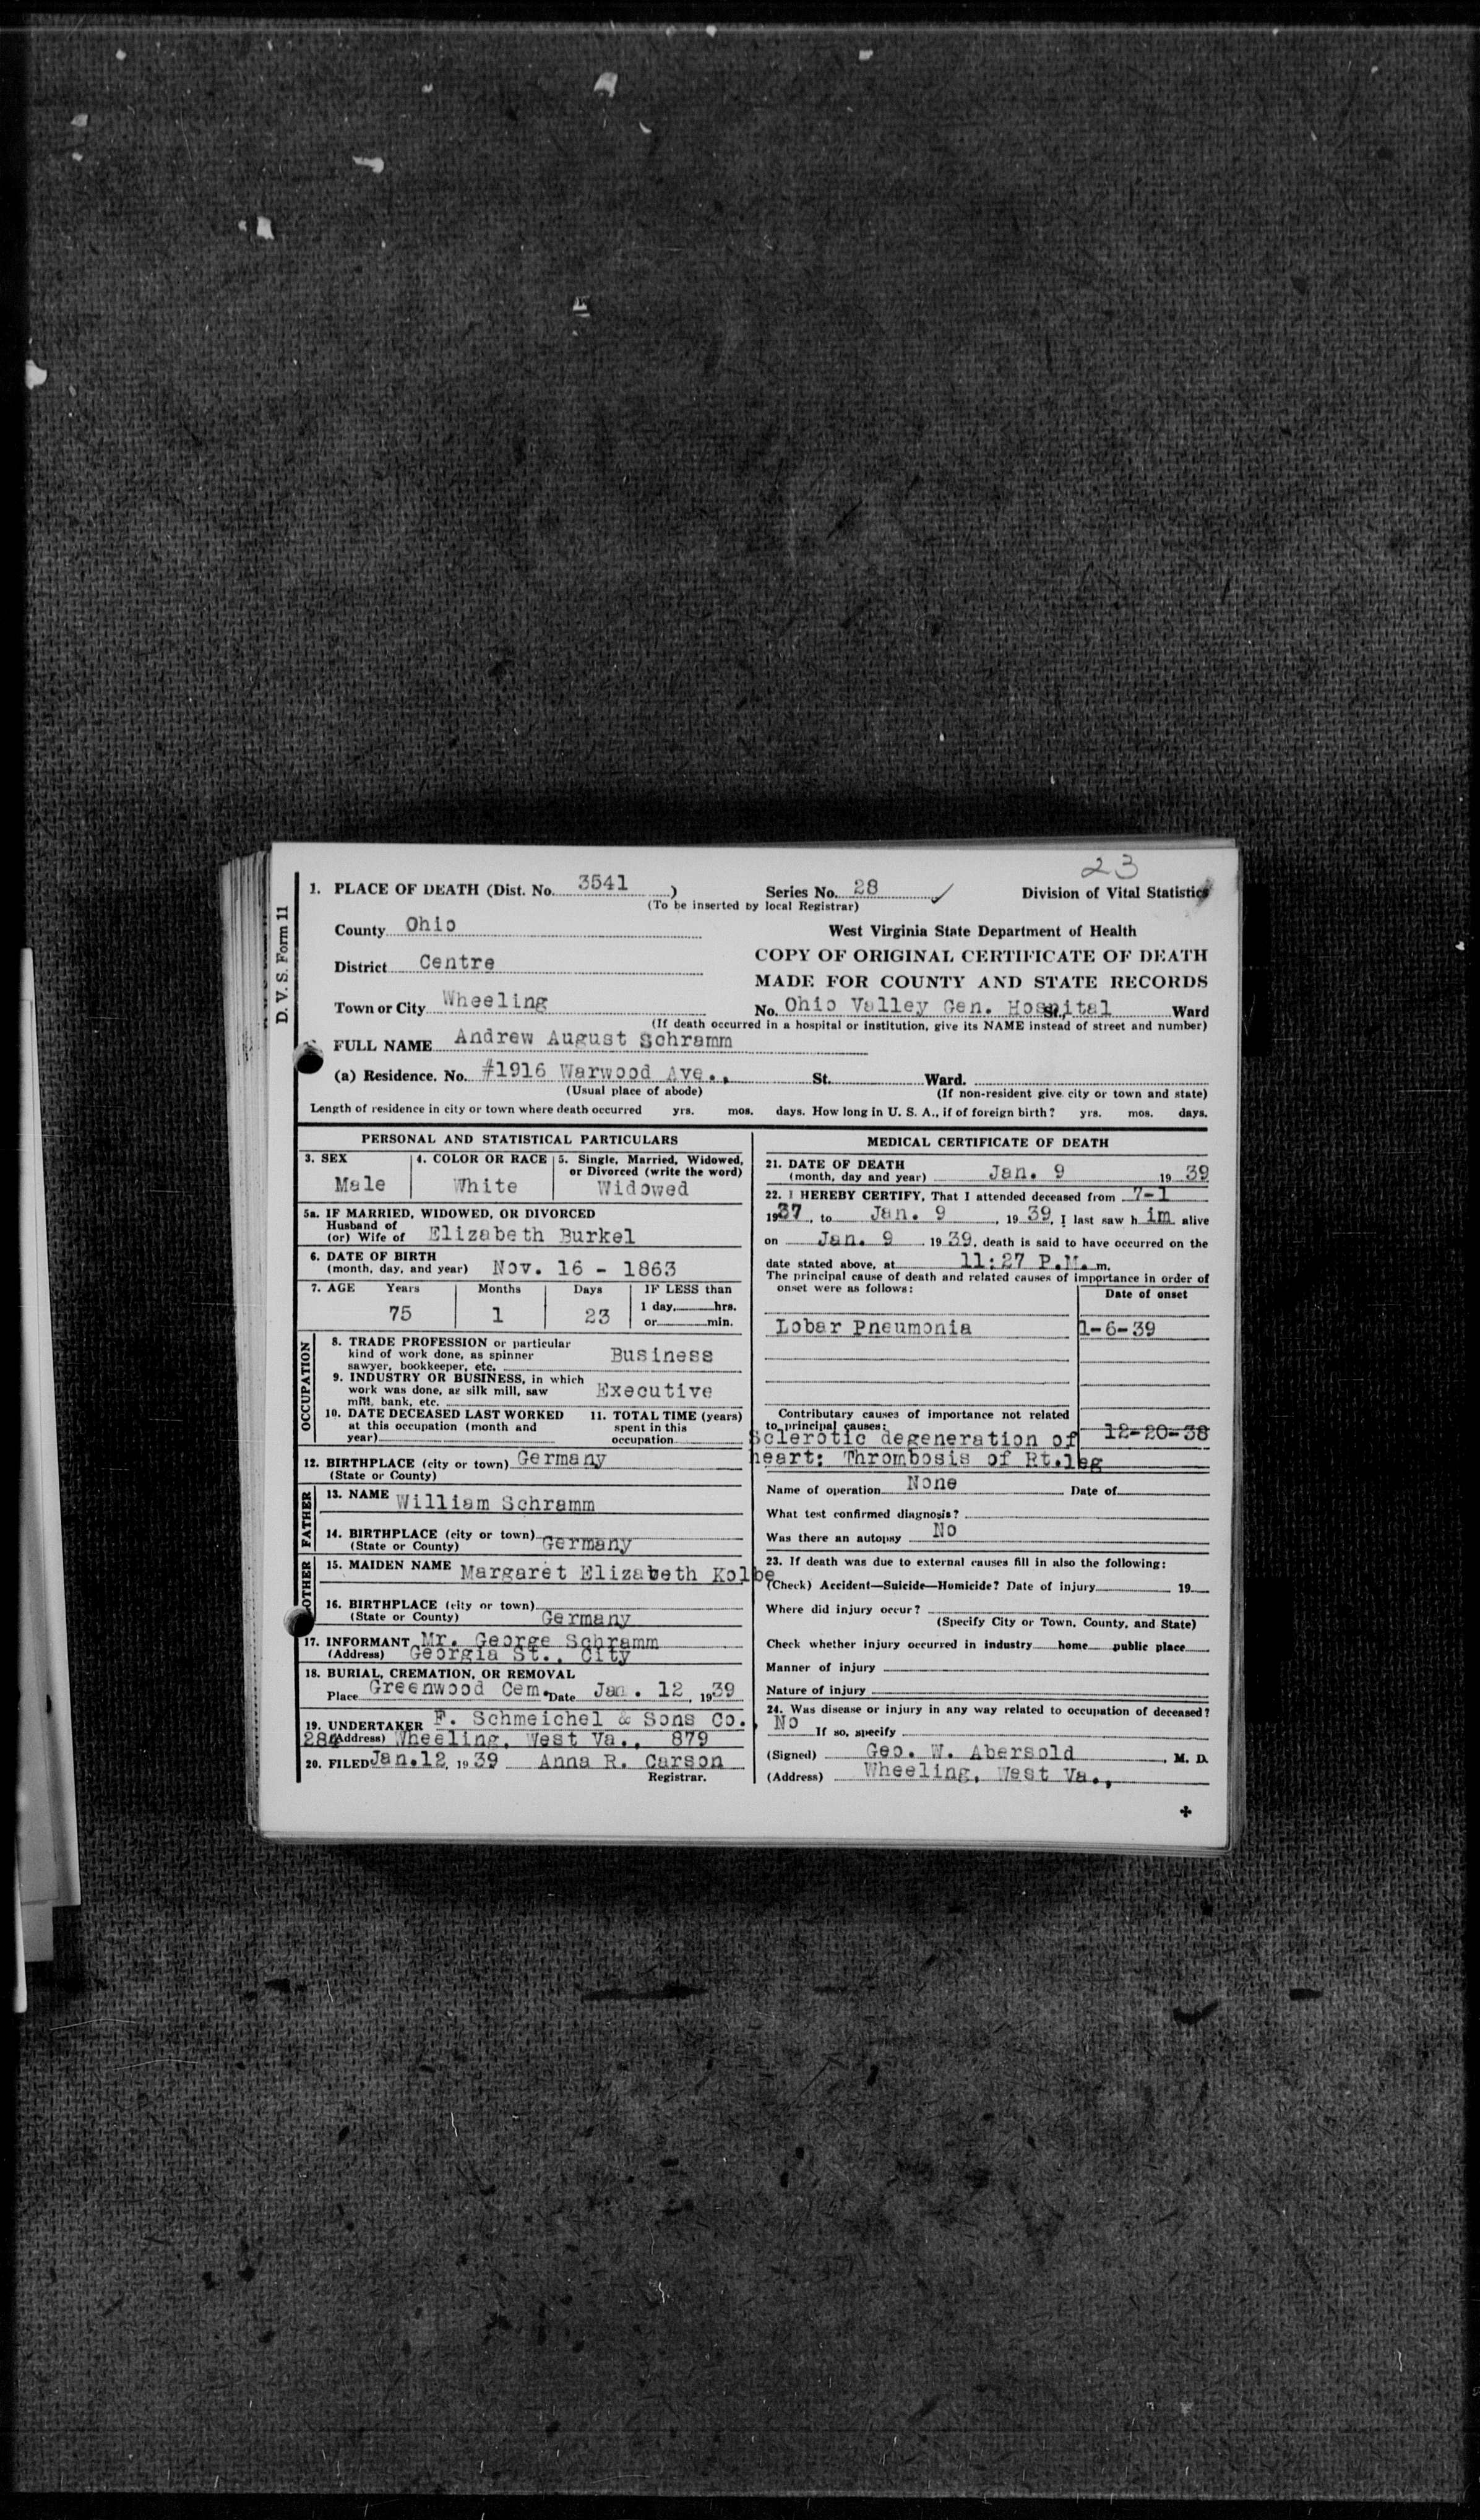 23
D. V. S. Form 11
1. PLACE OF DEATH (Dist. No. 3541 )
Series No. 28
Division of Vital Statistics
(To be inserted by local Registrar)
County Ohio
West Virginia State Department of Health
District Centre
COPY OF ORIGINAL CERTIFICATE OF DEATH
MADE FOR COUNTY AND STATE RECORDS
Town or City Wheeling
No. Ohio Valley Gen. Hospital St., Ward
(If death occurred in a hospital or institution, give its NAME instead of street and number)
FULL NAME Andrew August Schramm
(a) Residence. No. #1916 Warwood Ave., St. Ward.
(Usual place of abode) (If non-resident give city or town and state)
Length of residence in city or town where death occurred yrs. mos. days. How long in U. S. A., if of foreign birth? yrs. mos. days.
PERSONAL AND STATISTICAL PARTICULARS
3. SEX 4. COLOR OR RACE 5. Single, Married, Widowed,
or Divorced (write the word)
Male White Widowed
5a. IF MARRIED, WIDOWED, OR DIVORCED
Husband of
(or) Wife of Elizabeth Burkel
6. DATE OF BIRTH
(month, day, and year) Nov. 16 - 1863
7. AGE Years Months Days IF LESS than
75 1 23 1 day, hrs.
or min.
OCCUPATION
8. TRADE PROFESSION or particular
kind of work done, as spinner
sawyer, bookkeeper, etc. Business
9. INDUSTRY OR BUSINESS, in which
work was done, as silk mill, saw
mill, bank, etc. Executive
10. DATE DECEASED LAST WORKED
at this occupation (month and
year)
11. TOTAL TIME (years)
spent in this
occupation
12. BIRTHPLACE (city or town) Germany
(State or County)
FATHER
13. NAME William Schramm
14. BIRTHPLACE (city or town)
(State or County) Germany
OTHER
15. MAIDEN NAME Margaret Elizabeth Kolbe
16. BIRTHPLACE (city or town)
(State or County) Germany
17. INFORMANT Mr. George Schramm
(Address) Georgia St., City
18. BURIAL, CREMATION, OR REMOVAL
Place Greenwood Cem. Date Jan. 12, 1939
19. UNDERTAKER F. Schmeichel & Sons Co.,
284 (Address) Wheeling, West Va., 879
20. FILED Jan.12, 1939 Anna R. Carson
Registrar.
MEDICAL CERTIFICATE OF DEATH
21. DATE OF DEATH
(month, day and year) Jan. 9 1939
22. I HEREBY CERTIFY, That I attended deceased from 7-1
1937, to Jan. 9, 1939, I last saw h im alive
on Jan. 9 1939, death is said to have occurred on the
date stated above, at 11:27 P.M. m.
The principal cause of death and related causes of importance in order of
onset were as follows:
Date of onset
Lobar Pneumonia 1-6-39
Contributory causes of importance not related
to principal causes:
Sclerotic degeneration of 12-20-38
heart: Thrombosis of Rt.leg
Name of operation None Date of
What test confirmed diagnosis?
Was there an autopsy No
23. If death was due to external causes fill in also the following:
(Check) Accident—Suicide—Homicide? Date of injury 19
Where did injury occur?
(Specify City or Town, County, and State)
Check whether injury occurred in industry home public place
Manner of injury
Nature of injury
24. Was disease or injury in any way related to occupation of deceased?
No If so, specify
(Signed) Geo. W. Abersold, M. D.
(Address) Wheeling, West Va.,